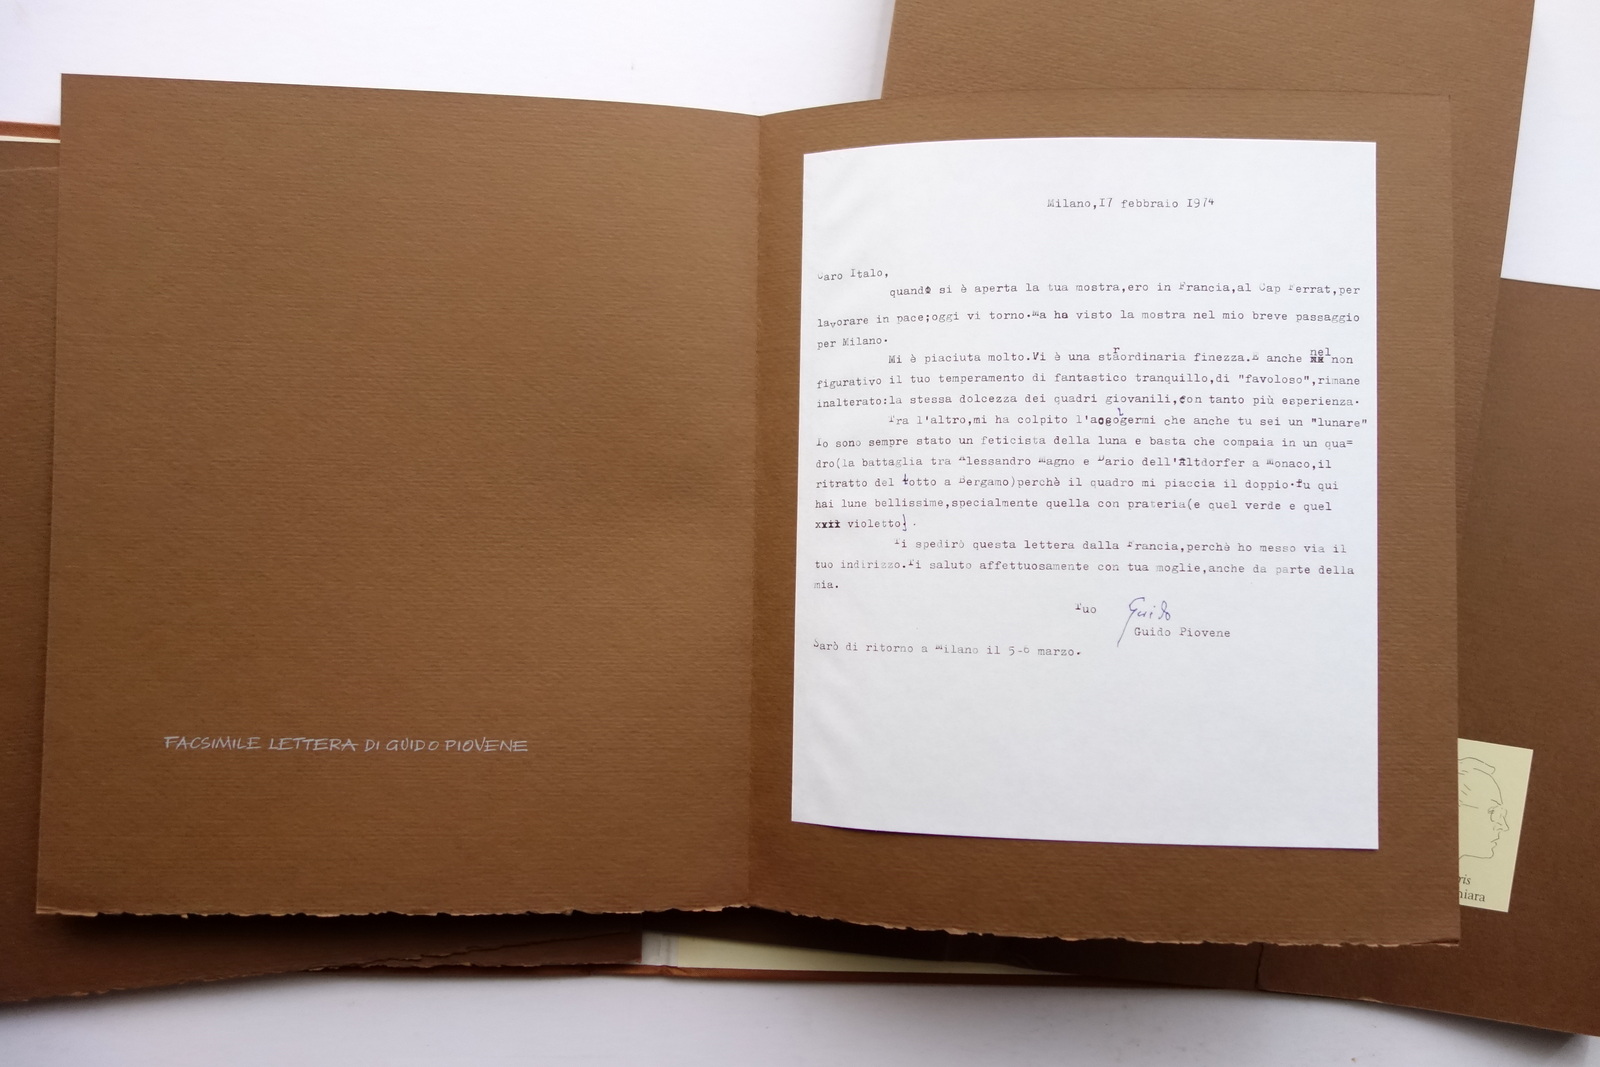 FACSIMILE LETTERA DI GUIDO PIOVENE
Milano,17 febbraio 1974
Caro Italo,
quando si è aperta la tua mostra,ero in Francia,al Cap Ferrat,per
lavorare in pace;oggi vi torno.Ma ha visto la mostra nel mio breve passaggio
per Milano.
Mi è piaciuta molto.Vi è una straordinaria finezza.E anche nel non
figurativo il tuo temperamento di fantastico tranquillo,di "favoloso",rimane
inalterato:la stessa dolcezza dei quadri giovanili,con tanto più esperienza.
Tra l'altro,mi ha colpito l'accogermi che anche tu sei un "lunare"
Io sono sempre stato un feticista della luna e basta che compaia in un qua=
dro(la battaglia tra Alessandro Magno e Dario dell'Altdorfer a Monaco,il
ritratto del Lotto a Bergamo)perchè il quadro mi piaccia il doppio.Tu qui
hai lune bellissime,specialmente quella con prateria(e quel verde e quel
violetto).
Ti spedirò questa lettera dalla Francia,perchè ho messo via il
tuo indirizzo.Ti saluto affettuosamente con tua moglie,anche da parte della
mia.
Tuo Guido
Guido Piovene
Sarò di ritorno a Milano il 5-6 marzo.
ris
hiara